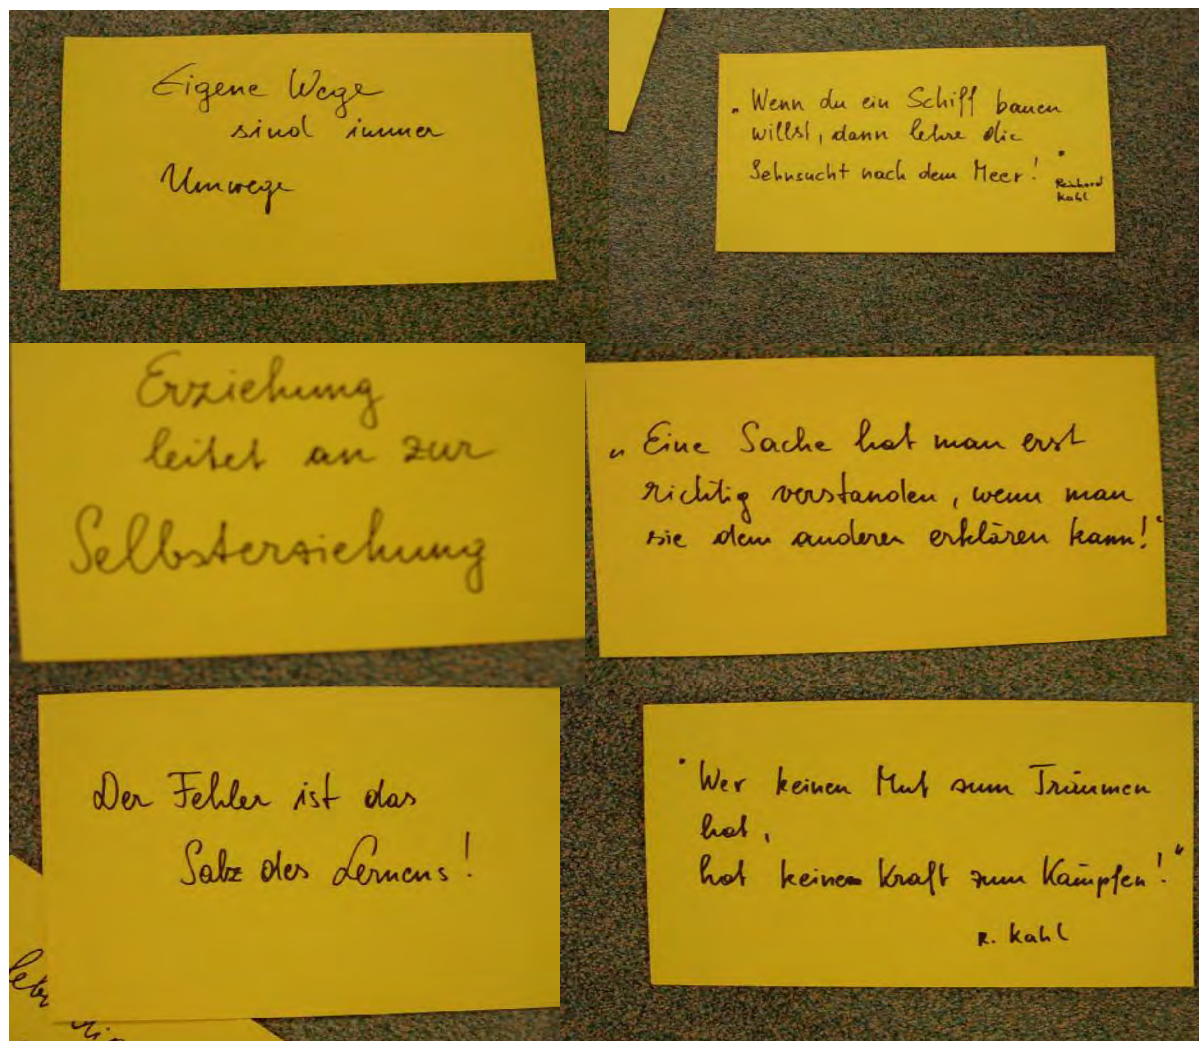 Eigene Wege
sind immer
Umwege
„Wenn du ein Schiff bauen
willst, dann lehre die
Sehnsucht nach dem Meer!"
Reinhard
Kahl
Erziehung
leitet an zur
Selbsterziehung
„Eine Sache hat man erst
richtig verstanden, wenn man
sie dem anderen erklären kann!"
Der Fehler ist das
Salz des Lernens!
"Wer keinen Mut zum Träumen
hat,
hat keine Kraft zum Kämpfen!"
R. Kahl